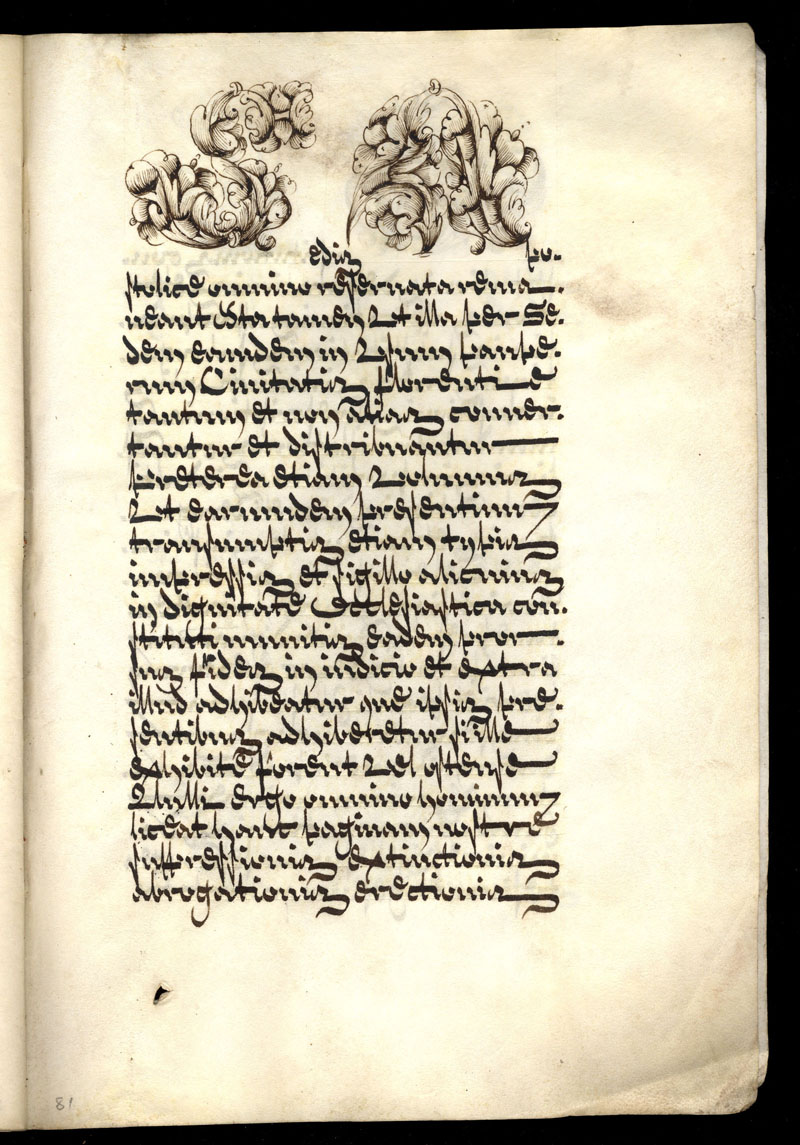 Sedis Apo-
stolice omnino reservata rema-
neant Ita tamen Ut illa per Se-
dem eamdem in Usum paupe-
rum Civitatis Florentie
tantum et non alias conver-
tantur et distribuantur
preterea etiam Volumus
Ut earumdem presentium
transumptis etiam typis
impressis et sigillo alicuius
in dignitate Ecclesiastica con-
stituti munitis eadem pror-
sus fides in iudicio et extra
illud adhibeatur que ipsis pre-
sentibus adhiberetur si ille
exhibite forent Vel ostense
Nulli ergo omnino hominum
liceat hanc paginam nostre
suppressionis extinctionis
abrogationis erectionis
81